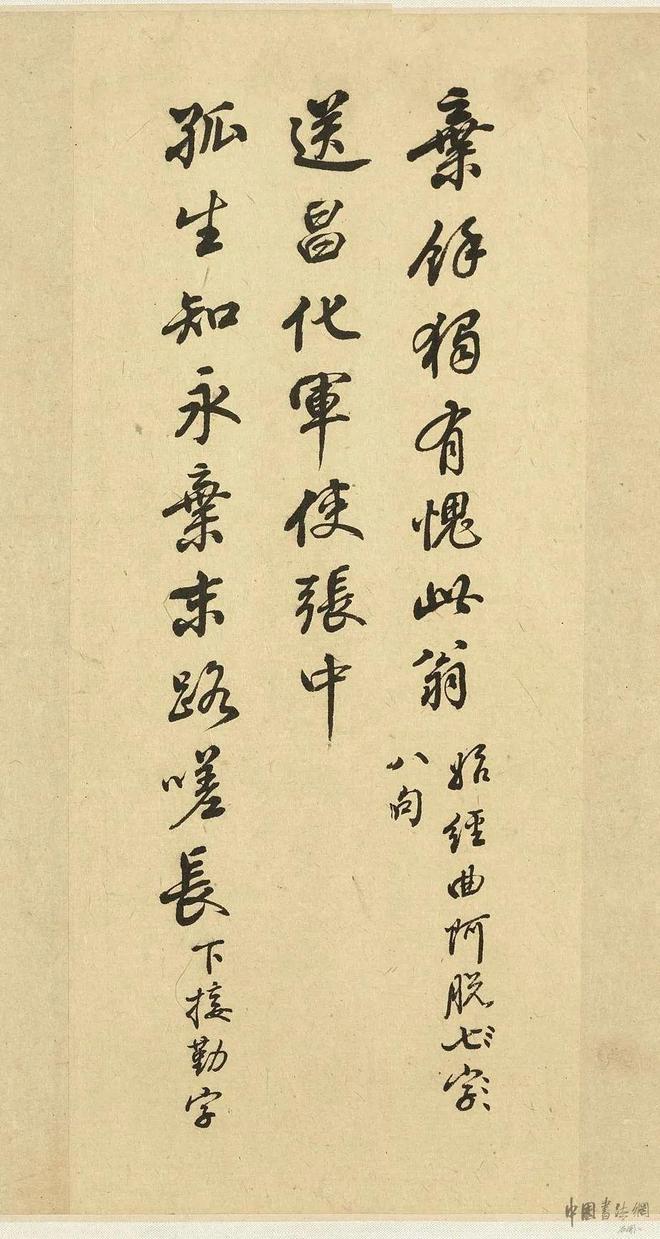 棄餘獨有愧此翁
始經曲阿脫七字
八句
送昌代軍使張中
孤生知永棄末路嗟長
下接勤字
中國書法網